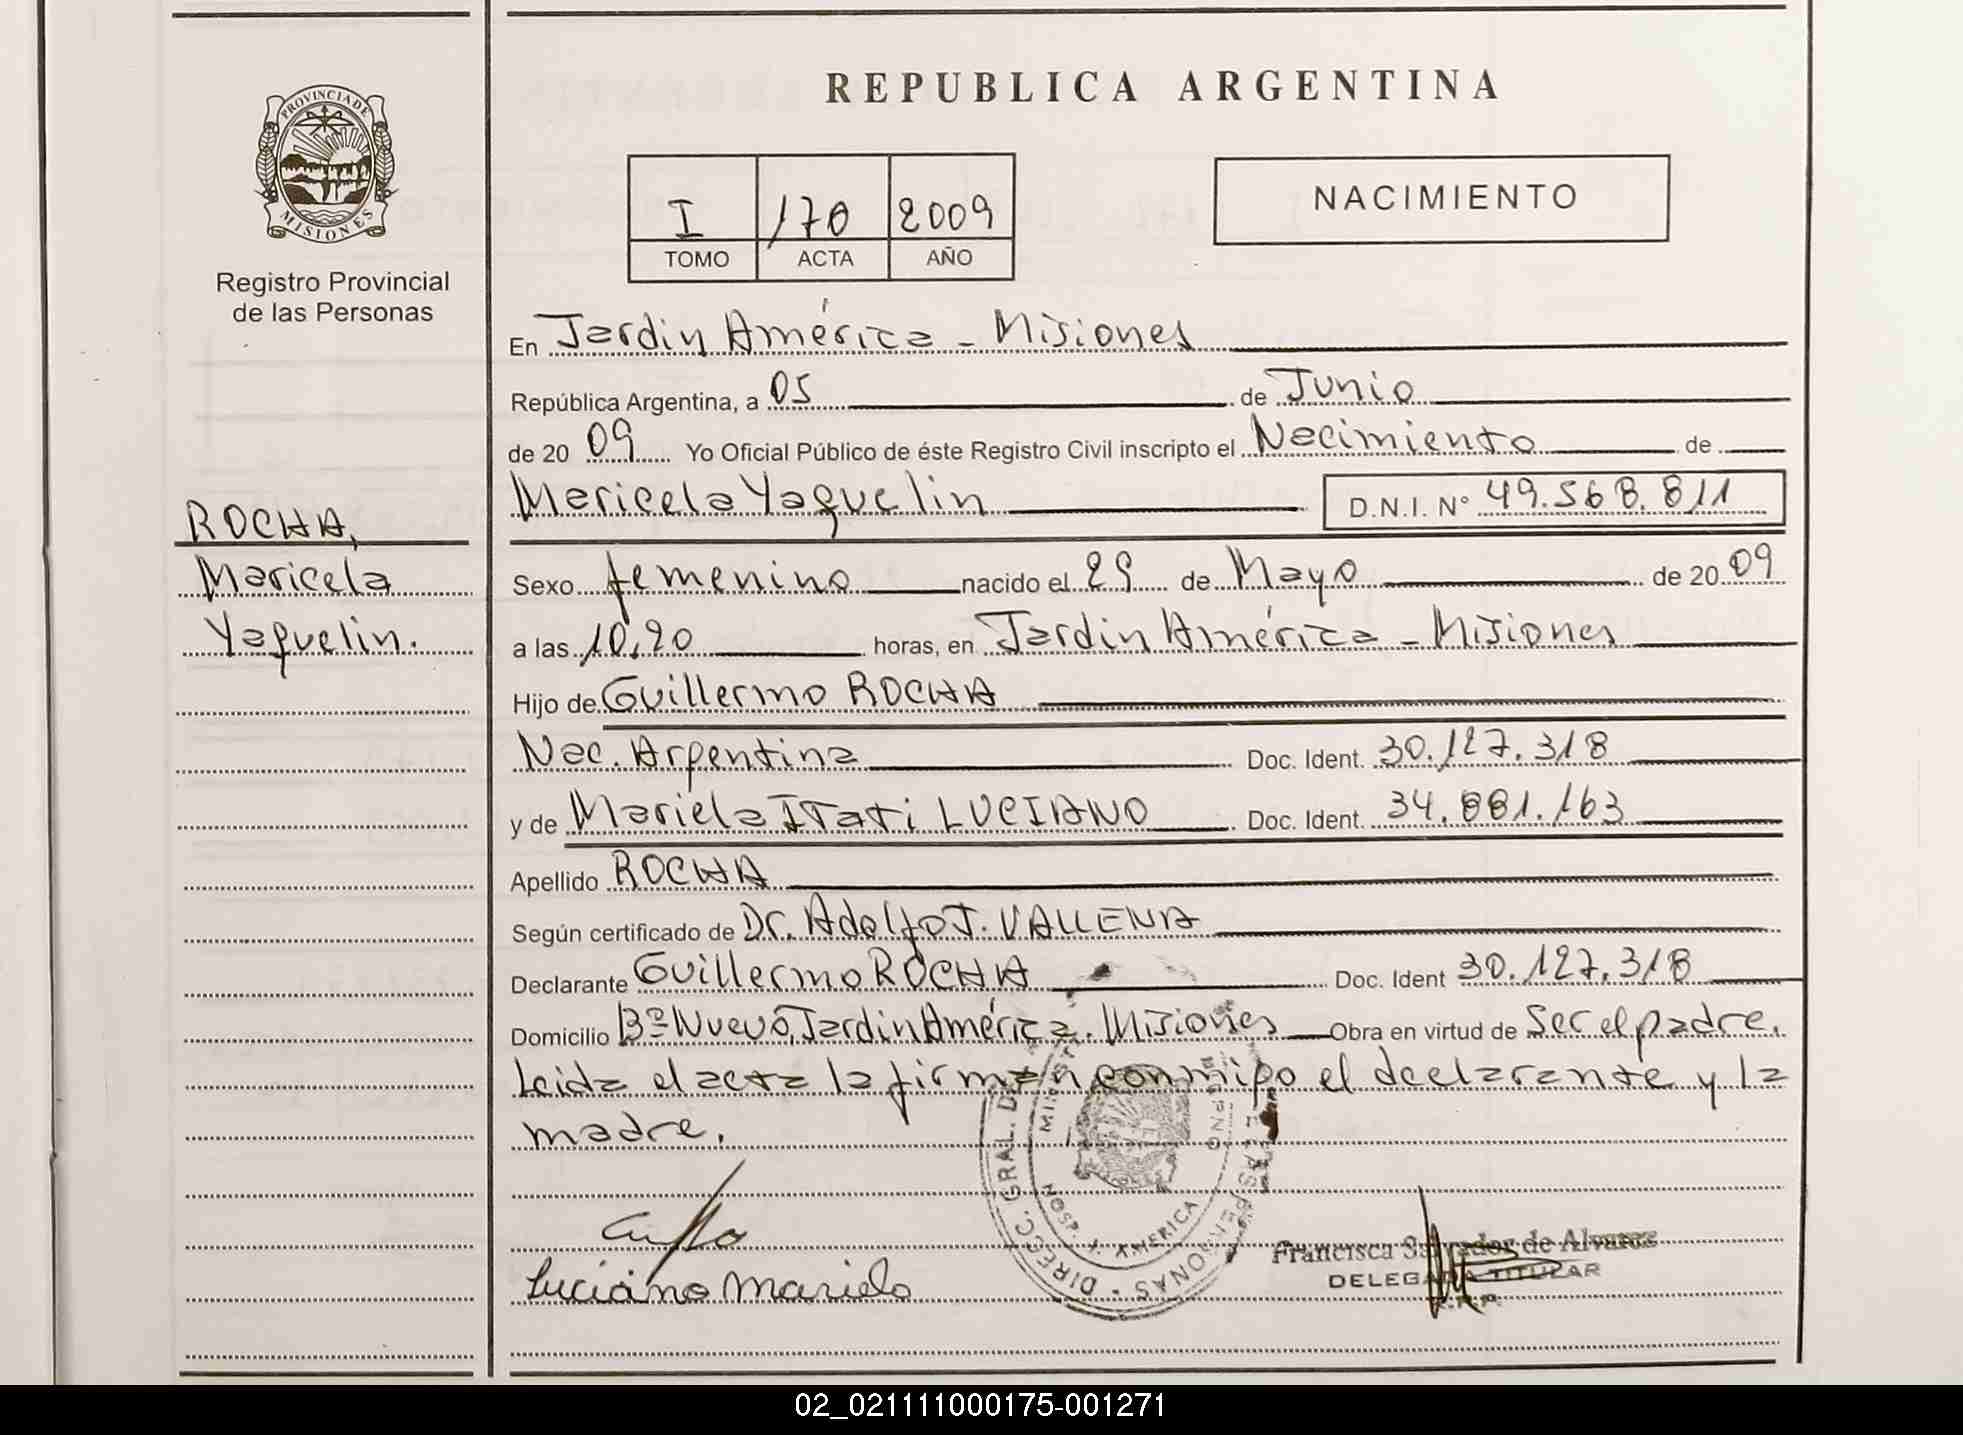 REPUBLICA ARGENTINA
PROVINCIA DE
MISIONES
Registro Provincial
de las Personas
I 170 2009
TOMO ACTA AÑO
NACIMIENTO
En Jardin América - Misiones
República Argentina, a 05 de Junio
de 20 09 Yo Oficial Público de éste Registro Civil inscripto el Nacimiento de
Maricela Yaquelin D.N.I. N° 49.568.811
ROCHA,
Maricela
Yaquelin.
Sexo femenino nacido el 29 de Mayo de 20 09
a las 10,20 horas, en Jardin América - Misiones
Hijo de Guillermo ROCHA
Nac. Argentina Doc. Ident. 30.127.318
y de Mariela ITATI LUCIANO Doc. Ident. 34.881.163
Apellido ROCHA
Según certificado de Dr. Adolfo J. VALLENA
Declarante Guillermo ROCHA Doc. Ident 30.127.318
Domicilio Bº Nuevo, Jardin América. Misiones Obra en virtud de Ser el padre.
Leida el acta la firman conmigo el declarante y la
madre.
Luciano Mariela
DIRECC. GRAL. D PERSONAS
HOSP. J. AMERICA
Francisca Salvador de Alvarez
DELEGADA TITULAR
R.P.P.
02_021111000175-001271